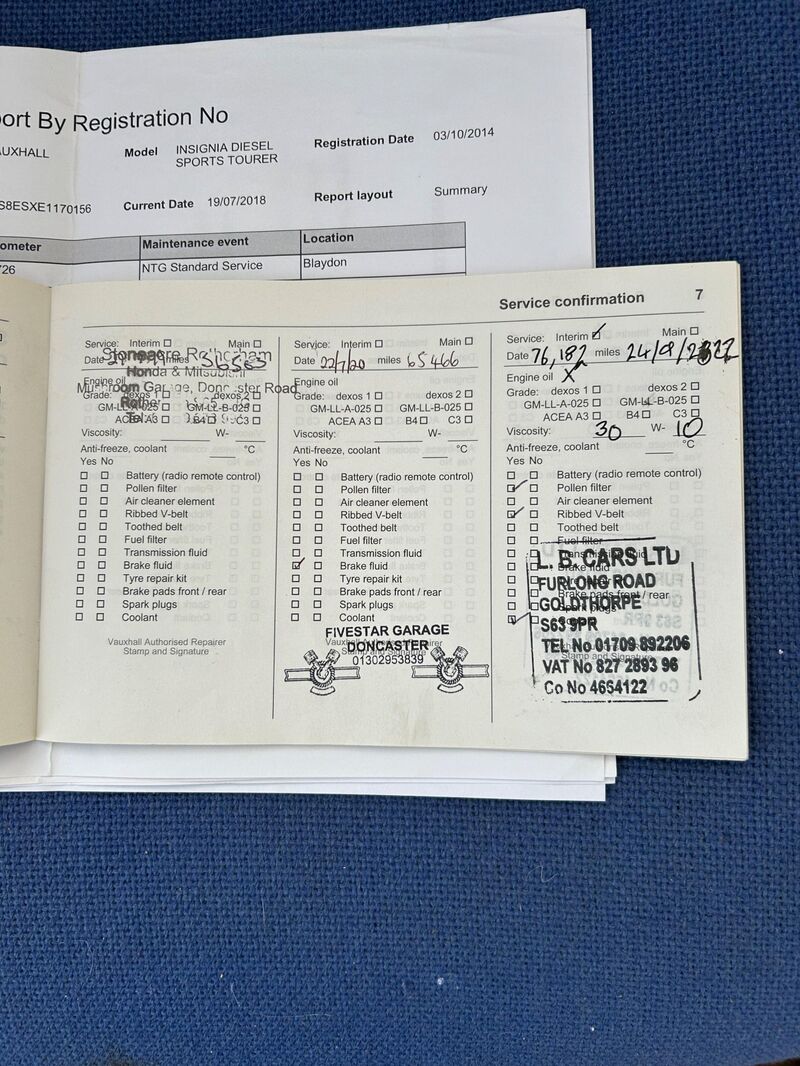 ort By Registration No
AUXHALL
Model INSIGNIA DIESEL
SPORTS TOURER
Registration Date 03/10/2014
S8ESXE1170156
Current Date 19/07/2018
Report layout Summary
ometer Maintenance event Location
726 NTG Standard Service Blaydon
Service confirmation 7
Service: Interim Main
Date miles
Stoneacre Rotherham
Honda & Mitsubishi
Engine oil
Grade: dexos 1 dexos 2
GM-LL-A-025 GM-LL-B-025
ACEA A3 B4 C3
Tel:
Viscosity: W-
Anti-freeze, coolant °C
Yes No
Battery (radio remote control)
Pollen filter
Air cleaner element
Ribbed V-belt
Toothed belt
Fuel filter
Transmission fluid
Brake fluid
Tyre repair kit
Brake pads front / rear
Spark plugs
Coolant
Vauxhall Authorised Repairer
Stamp and Signature
Service: Interim Main
Date 22/7/20 miles 65466
Engine oil
Grade: dexos 1 dexos 2
GM-LL-A-025 GM-LL-B-025
ACEA A3 B4 C3
Viscosity: W-
Anti-freeze, coolant °C
Yes No
Battery (radio remote control)
Pollen filter
Air cleaner element
Ribbed V-belt
Toothed belt
Fuel filter
Transmission fluid
Brake fluid
Tyre repair kit
Brake pads front / rear
Spark plugs
Coolant
FIVESTAR GARAGE
Vauxhall Authorised Repairer
DONCASTER
Stamp and Signature
01302953839
Service: Interim Main
Date 76,182 miles
Engine oil X
Grade: dexos 1 dexos 2
GM-LL-A-025 GM-LL-B-025
ACEA A3 B4 C3
Viscosity: 30 W- 10
Anti-freeze, coolant °C
Yes No
Battery (radio remote control)
Pollen filter
Air cleaner element
Ribbed V-belt
Toothed belt
Fuel filter
Transmission fluid
Brake fluid
Tyre repair kit
Brake pads front / rear
L. B. CARS LTD
FURLONG ROAD
GOLDTHORPE
S63 9PR
TEL No 01709 892206
VAT No 827 2893 96
Co No 4654122